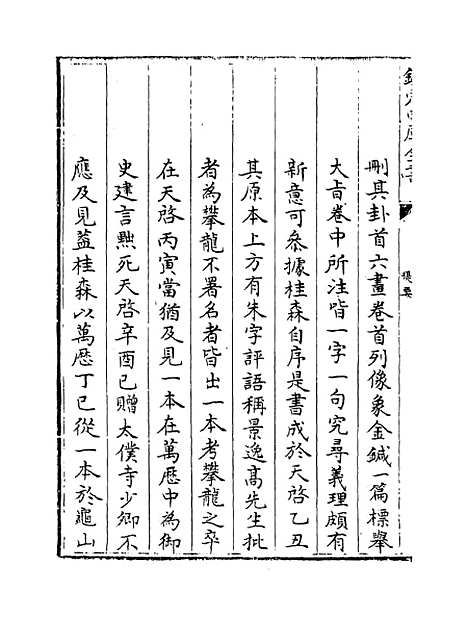 欽定四庫全書
提要
刪其卦首六畫卷首列像象金鍼一篇標舉
大旨卷中所注皆一字一句究尋義理頗有
新意可叅據桂森自序是書成於天啓乙丑
其原本上方有朱字評語稱景逸髙先生批
者為攀龍不署名者皆出一本考攀龍之卒
在天啓丙寅當猶及見一本在萬厯中為御
史建言黜死天啓辛酉已贈太僕寺少卿不
應及見葢桂森以萬厯丁巳從一本於龜山